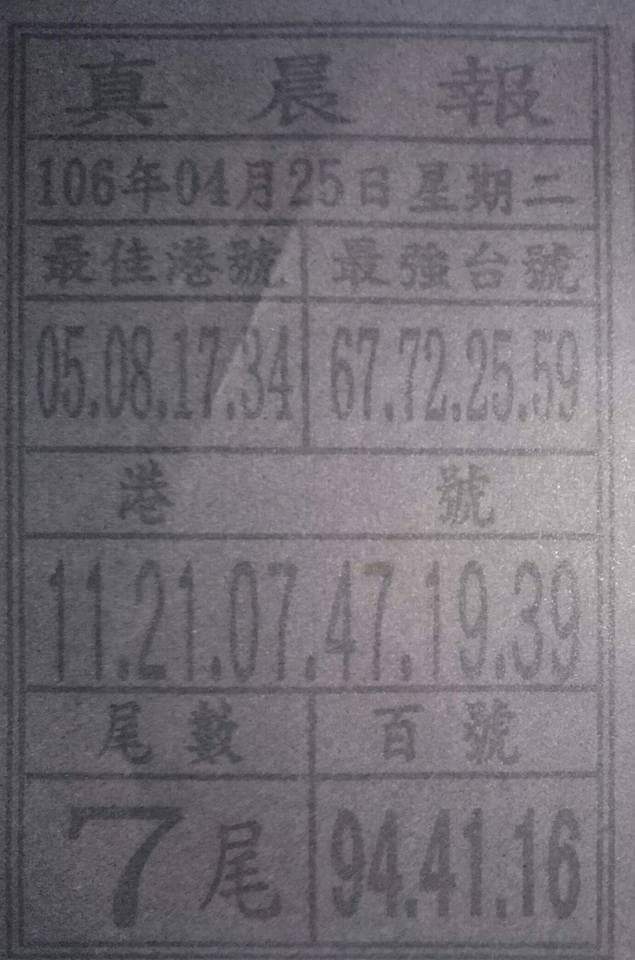 真晨報
106年04月25日星期二
最佳港號 最強台號
05.08.17.34 67.72.25.59
港號
11.21.07.47.19.39
尾數 百號
7尾 94.41.16